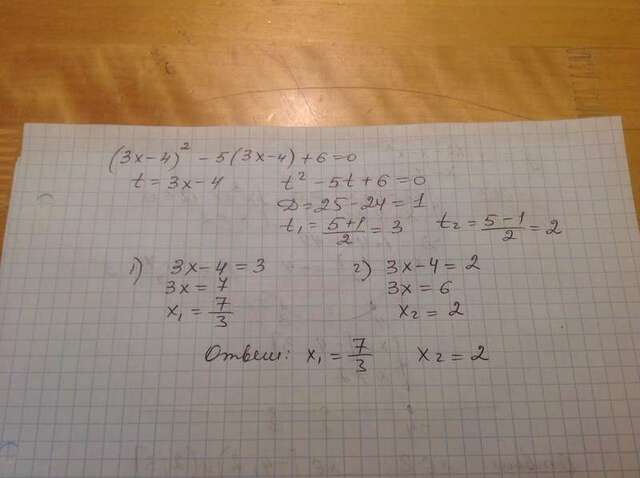 (3x-4)² - 5(3x-4) + 6 = 0
t = 3x-4 t² - 5t + 6 = 0
D = 25-24 = 1
t₁ = (5+1)/2 = 3 t₂ = (5-1)/2 = 2
1) 3x-4 = 3 2) 3x-4 = 2
3x = 7 3x = 6
x₁ = 7/3 x₂ = 2
Ответ: x₁ = 7/3 x₂ = 2